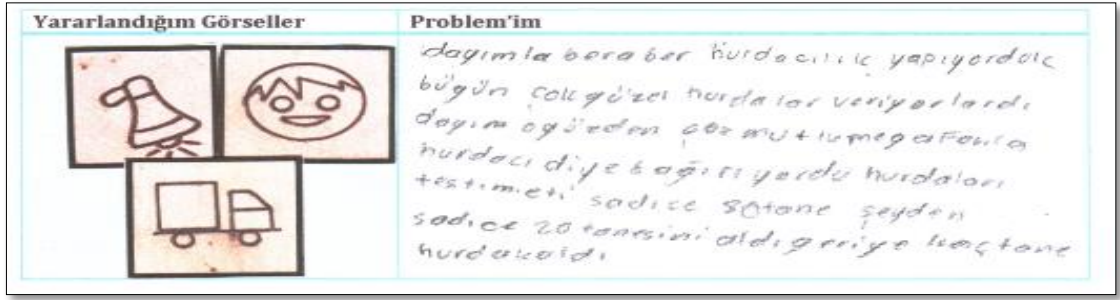 Yararlandığım Görseller
Problem'im
dayımla beraber hurdacılık yapıyorduk
bügün çok güzel hurdalar veriyorlardı
dayım ogüzden çoz mutlu megafonla
hurdacı diye bağırıyordu hurdaları
testimeti sadice 80 tane şeyden
sadice 20 tanesini aldı geriye kaç tane
hurda kaldı